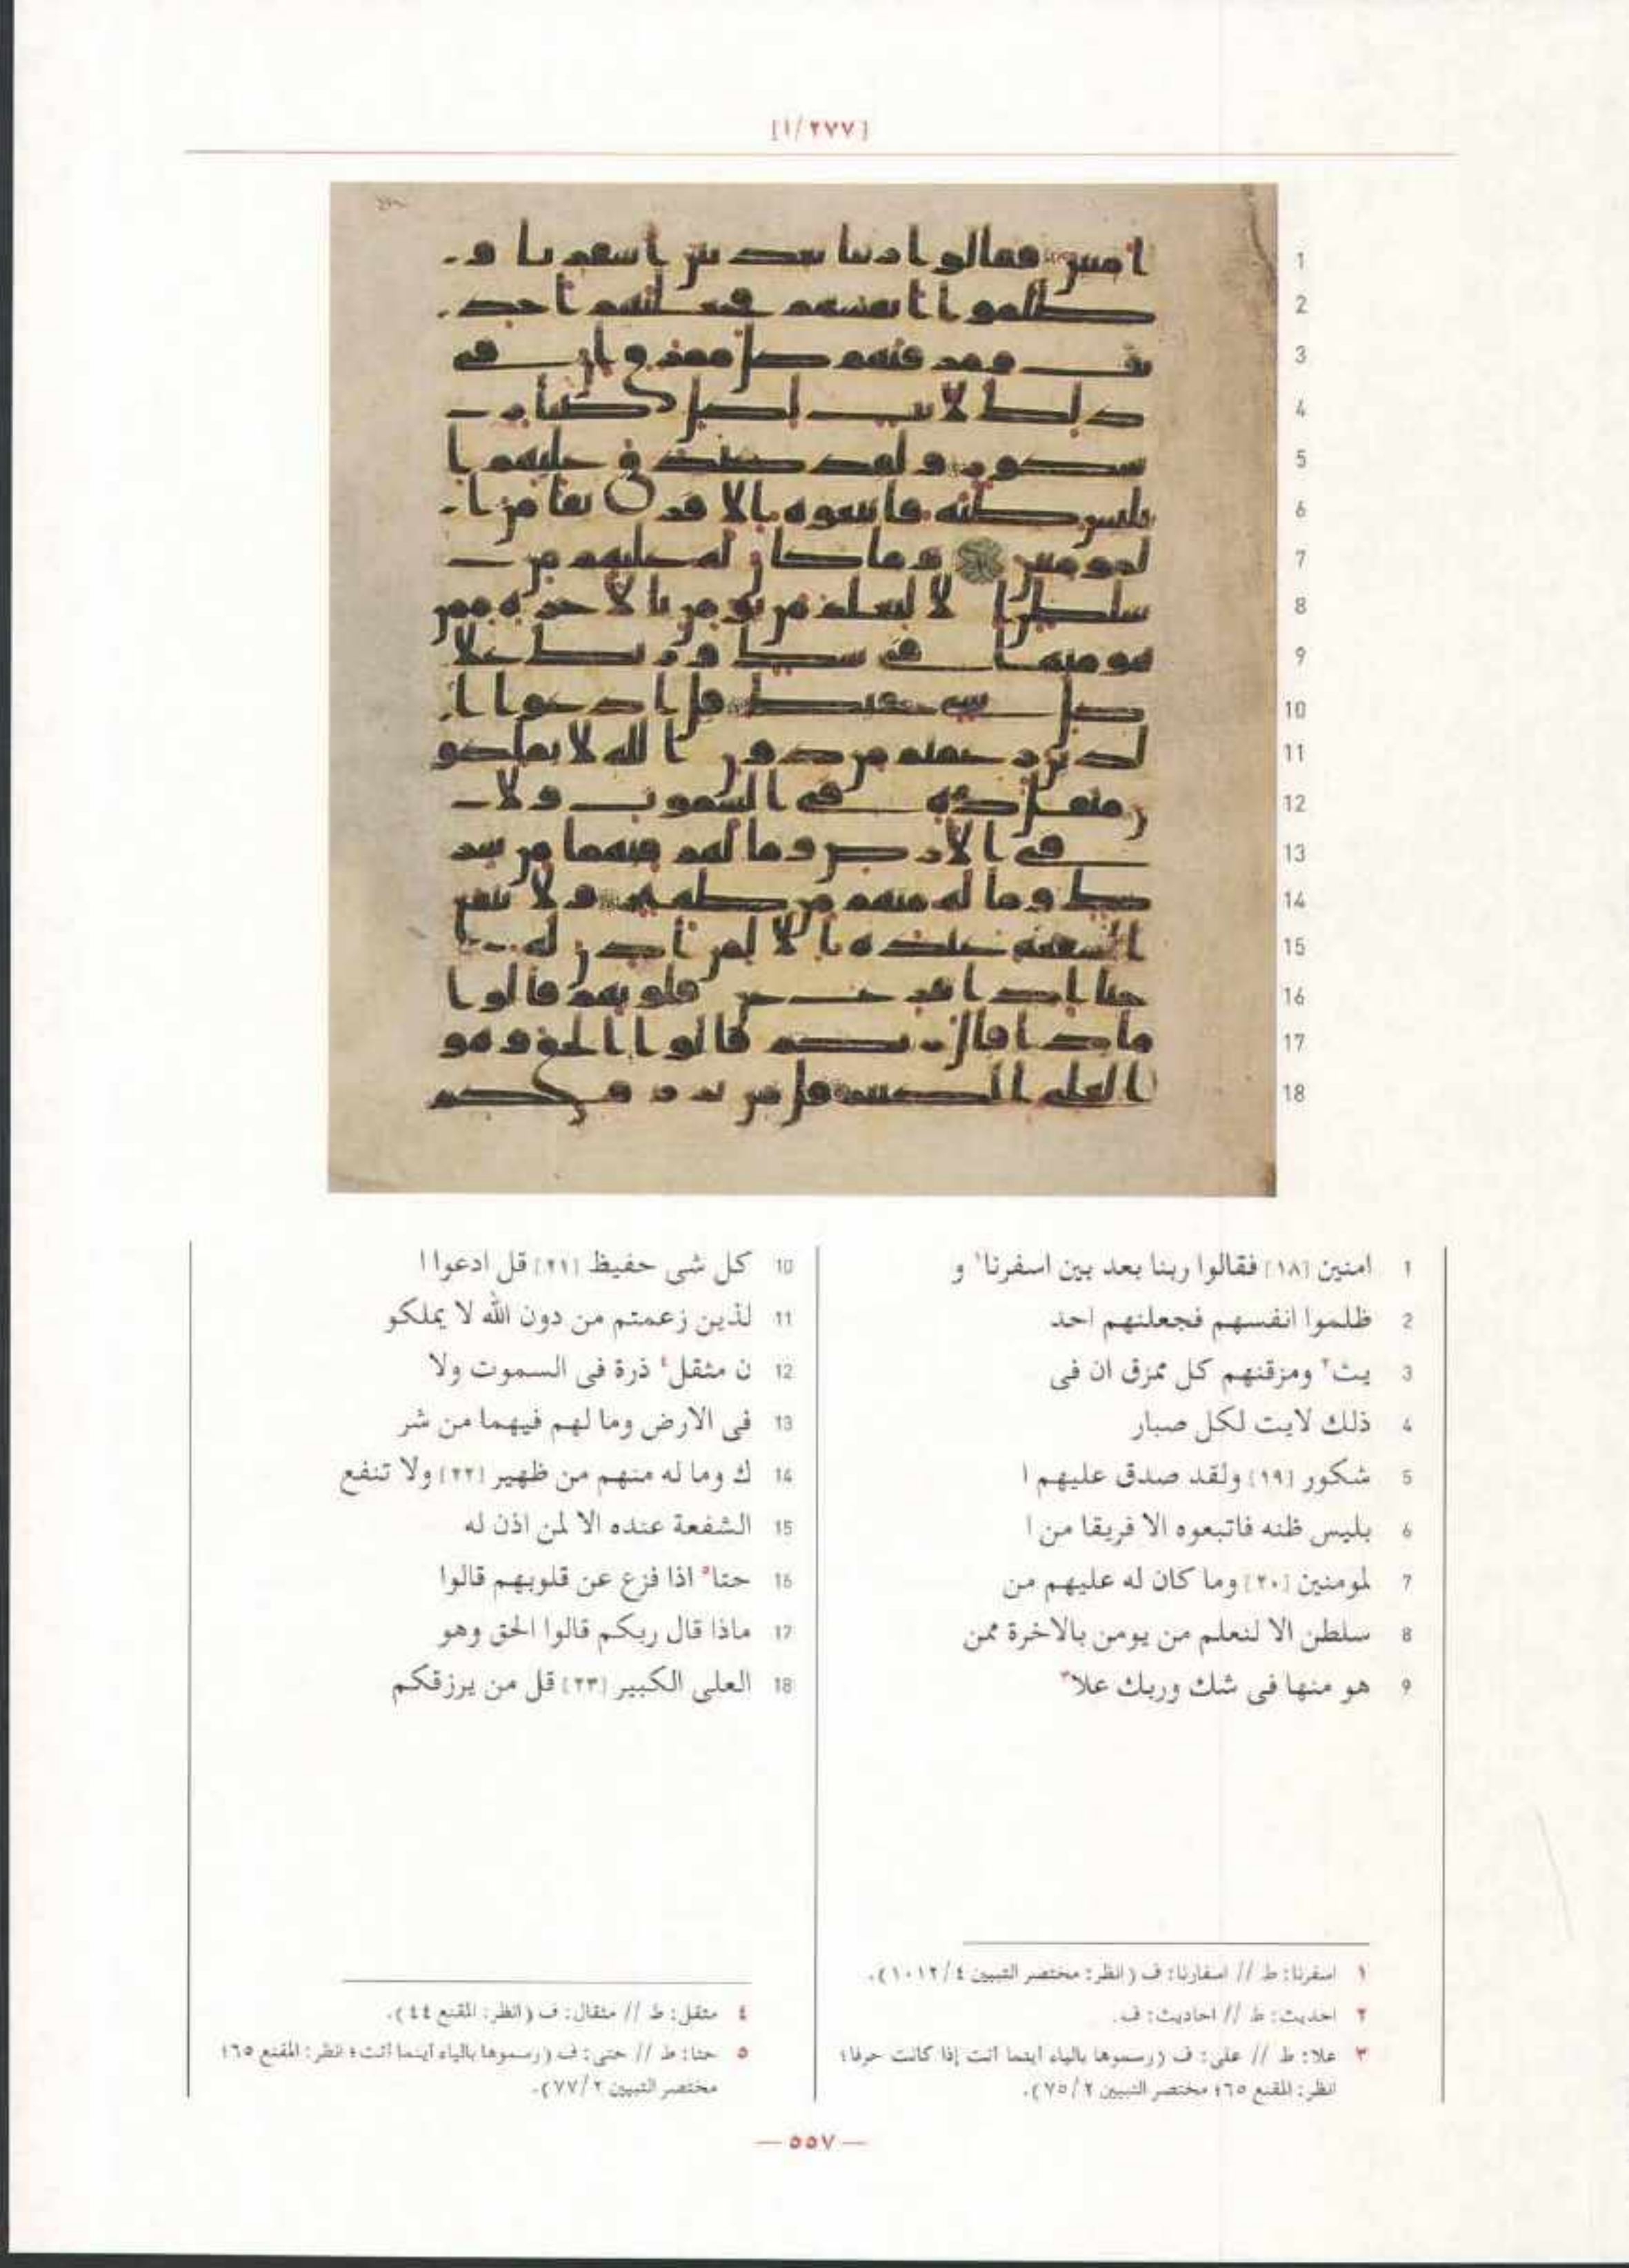 [١/٢٧٧]
1
2
3
4
5
6
7
8
9
10
11
12
13
14
15
16
17
18
1 امنين [١٨] فقالوا ربنا بعد بين اسفرنا١ و
2 ظلموا انفسهم فجعلنهم احد
3 يث٢ ومزقنهم كل ممزق ان فى
4 ذلك لايت لكل صبار
5 شكور [١٩] ولقد صدق عليهم ا
6 بليس ظنه فاتبعوه الا فريقا من ا
7 لمومنين [٢٠] وما كان له عليهم من
8 سلطن الا لنعلم من يومن بالاخرة ممن
9 هو منها فى شك وربك علا٣
10 كل شى حفيظ [٢١] قل ادعوا ا
11 لذين زعمتم من دون الله لا يملكو
12 ن مثقل٤ ذرة فى السموت ولا
13 فى الارض وما لهم فيهما من شر
14 ك وما له منهم من ظهير [٢٢] ولا تنفع
15 الشفعة عنده الا لمن اذن له
16 حتا٥ اذا فزع عن قلوبهم قالوا
17 ماذا قال ربكم قالوا الحق وهو
18 العلى الكبير [٢٣] قل من يرزقكم
١ اسفرنا: ط // اسفارنا: ف (انظر: مختصر التبيين ٤/١٠١٢).
٢ احديث: ط // احاديث: ف.
٣ علا: ط // على: ف (رسموها بالياء أينما أتت إذا كانت حرفا؛
انظر: المقنع ٦٥؛ مختصر التبيين ٢/٧٥).
٤ مثقل: ط // مثقال: ف (انظر: المقنع ٤٤).
٥ حتا: ط // حتى: ف (رسموها بالياء أينما أتت؛ انظر: المقنع ٦٥؛
مختصر التبيين ٢/٧٧).
— ٥٥٧ —